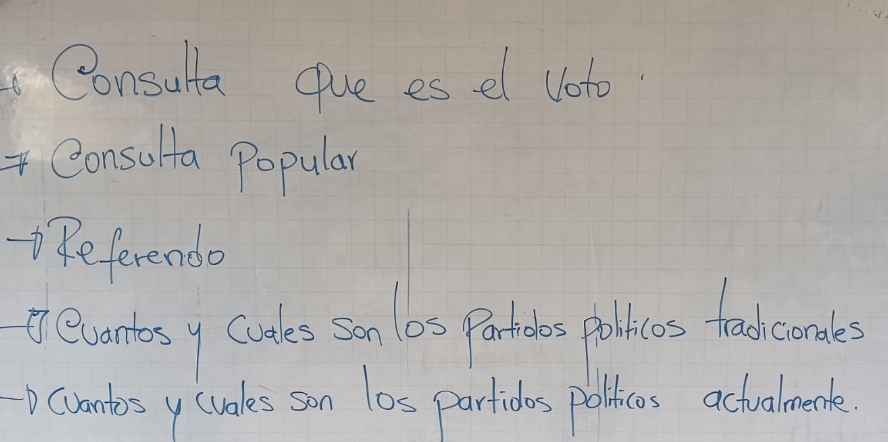 → Consulta que es el Voto.
→ Consulta Popular
→ Referendo
→ Cuantos y Cuales son los Partidos políticos tradicionales
→ Cuantos y cuales son los partidos políticos actualmente.